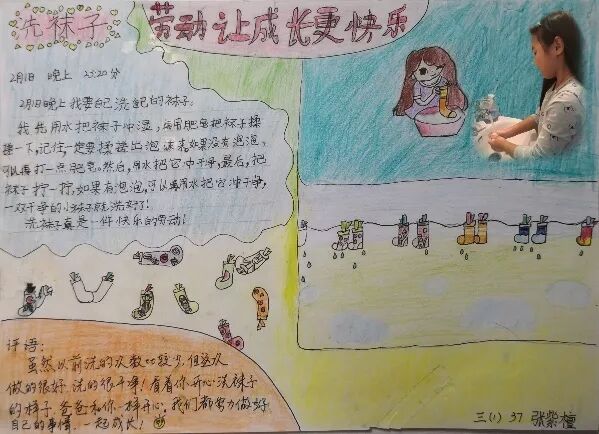 洗袜子
劳动让成长更快乐
2月1日 晚上 23:20分
2月1日晚上我要自己洗自己的袜子。
我先用水把袜子冲湿,再用肥皂把袜子揉
揉一下,记住,一定要揉搓出泡沫来。如果没有泡泡,
可以再打一点肥皂。然后,用水把它冲干净,最后,把
袜子拧一拧,如果有泡泡,可以再用水把它冲干净,
一双干净的小袜子就洗好了!
洗袜子真是一件快乐的劳动!
评语:
虽然以前洗的次数比较少,但这次
做的很好,洗的很干净!看着你开心洗袜子
的样子,爸爸和你一样开心。我们都努力做好
自己的事情,一起成长!
三(1) 37 张紫檀